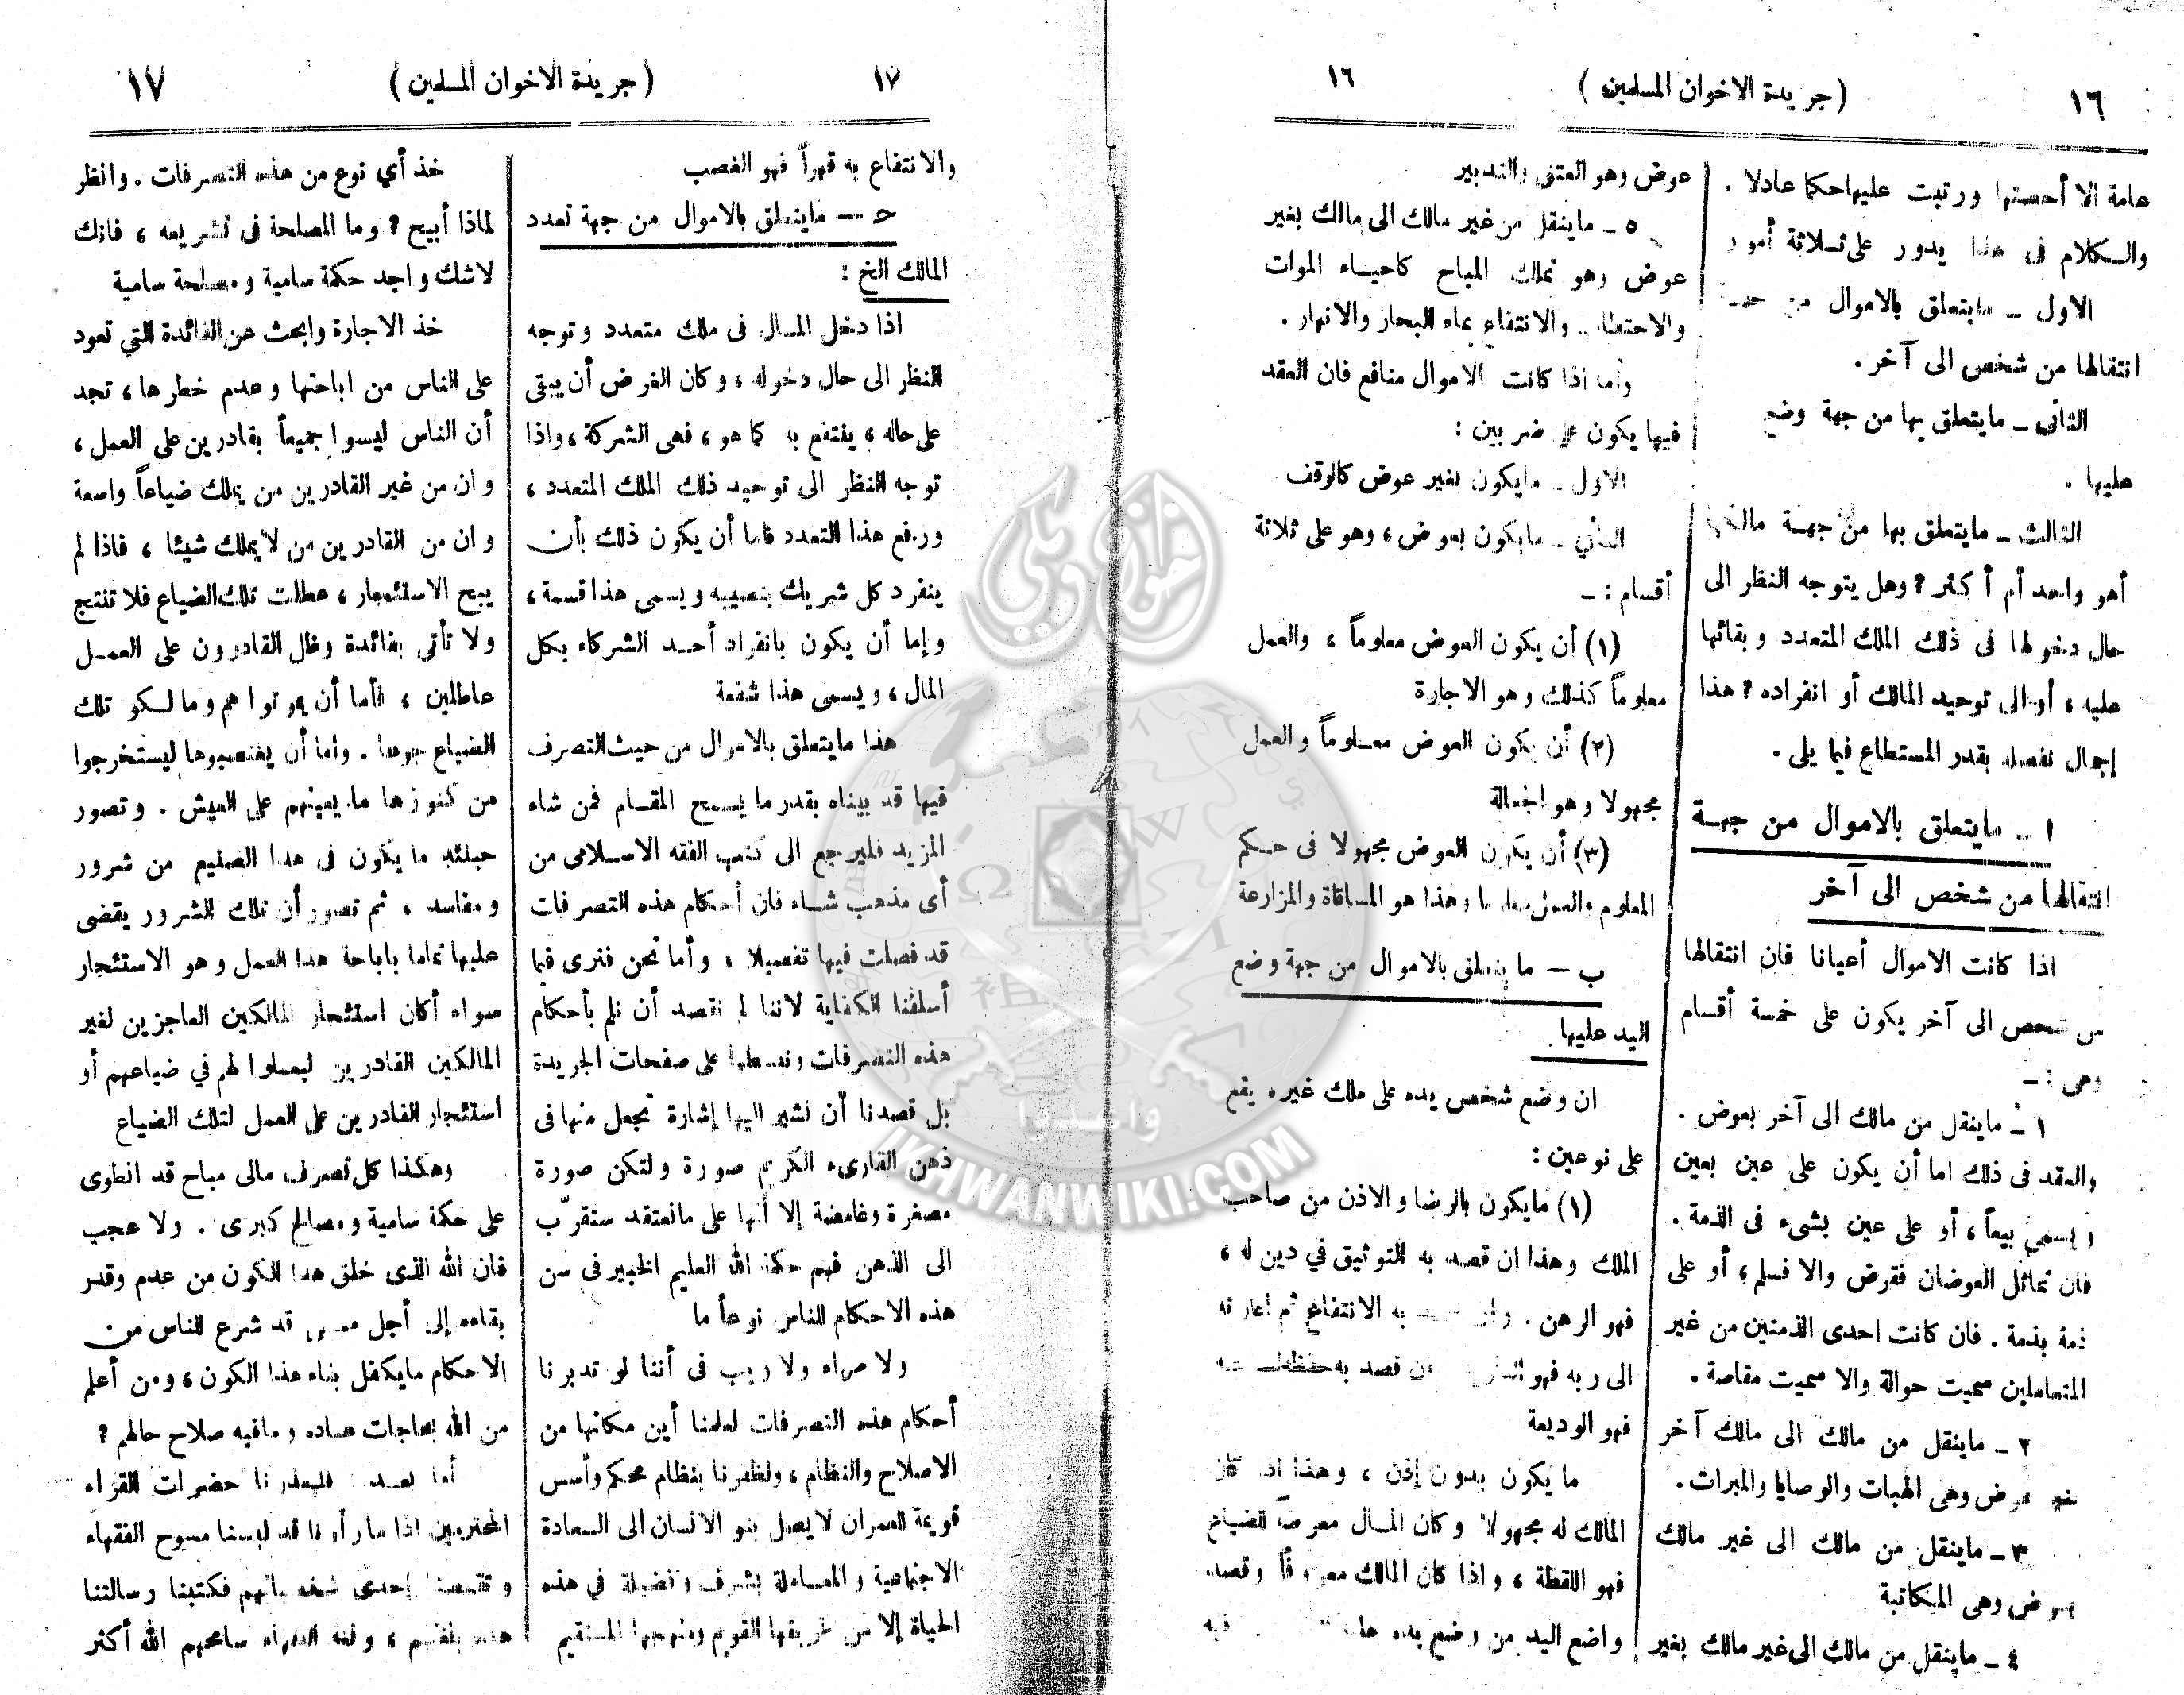 ١٦
( جريدة الاخوان المسلمين )
١٦
عامة الا أحصتها ورتبت عليها حكما عادلا .
والكلام فى هذا يدور على ثلاثة أمور
الاول – مايتعلق بالاموال من جهة
انتقالها من شخص الى آخر .
الثانى – مايتعلق بها من جهة وضع
عليها .
الثالث – مايتعلق بها من جهة مالكها
أهو واحد أم أكثر ؟ وهل يتوجه النظر الى
حال دخولها فى ذلك الملك المتعدد وبقائها
عليه ، أو الى توحيد المالك أو انفراده ؟ هذا
إجمال نفصله بقدر المستطاع فيما يلى .
ا – مايتعلق بالاموال من جهة
انتقالها من شخص الى آخر
اذا كانت الاموال أعيانا فان انتقالها
من شخص الى آخر يكون على خمسة أقسام
وهى : –
١ – ماينقل من مالك الى آخر بعوض .
والعقد فى ذلك اما أن يكون على عين بعين
ويسمى بيعاً ، أو على عين بشىء فى الذمة .
فان تماثل العوضان فقرض والا فسلم ، أو على
ذمة بذمة . فان كانت احدى الذمتين من غير
المتعاملين سميت حوالة والا سميت مقاصة .
٢ – ماينقل من مالك الى مالك آخر
بغير عوض وهى الهبات والوصايا والمبرات .
٣ – ماينقل من مالك الى غير مالك
بعوض وهى المكاتبة
٤ – ماينقل من مالك الى غير مالك بغير
عوض وهو العتق والتدبير
٥ – ماينقل من غير مالك الى مالك بغير
عوض وهو تملك المباح كاحياء الموات
والاحتطاب والانتفاع بماء البحار والانهار .
وأما اذا كانت الاموال منافع فان العقد
فيها يكون على ضربين :
الاول – مايكون بغير عوض كالوقف
الثانى – مايكون بعوض ، وهو على ثلاثة
أقسام : –
(١) أن يكون العوض معلوماً ، والعمل
معلوماً كذلك وهو الاجارة
(٢) أن يكون العوض معلوماً والعمل
مجهولا وهو الجعالة
(٣) أن يكون العوض مجهولا فى حكم
المعلوم والعمل معلوما وهذا هو المساقاة والمزارعة
ب – ما يتعلق بالاموال من جهة وضع
اليد عليها
ان وضع شخص يده على ملك غيره يقع
على نوعين :
(١) مايكون بالرضا والاذن من صاحب
الملك وهذا ان قصد به التوثيق في دين له ،
فهو الرهن . وان قصد به الانتفاع ثم اعادته
الى ربه فهو قصد به حفظه
فهو الوديعة
ما يكون بدون إذن ، وهذا اذا كان
المالك له مجهولا وكان المال معرضاً للضياع
فهو اللقطة ، واذا كان المالك معروفاً وقصد
واضع اليد من وضع يده
١٧
( جريدة الاخوان المسلمين )
١٧
والانتفاع به قهراً فهو الغصب
حـ – مايتعلق بالاموال من جهة تعدد
المالك الخ :
اذا دخل المال فى ملك متعدد وتوجه
النظر الى حال دخوله ، وكان الغرض أن يبقى
على حاله ، ينتفع به كما هو ، فهى الشركة ، واذا
توجه النظر الى توحيد ذلك الملك المتعدد ،
ورفع هذا التعدد فاما أن يكون ذلك بأن
ينفرد كل شريك بنصيبه ويسمى هذا قسمة ،
وإما أن يكون بانفراد أحد الشركاء بكل
المال ، ويسمى هذا شفعة
هذا مايتعلق بالاموال من حيث التصرف
فيها قد بيناه بقدر ما يسمح المقام فمن شاء
المزيد فليرجع الى كتب الفقه الاسلامى من
أى مذهب شاء فان أحكام هذه التصرفات
قد فصلت فيها تفصيلا ، وأما نحن فنرى فيما
أسلفنا الكفاية لاننا لم نقصد أن نلم بأحكام
هذه التصرفات ونبسطها على صفحات الجريدة
بل قصدنا أن نشير اليها إشارة تجعل منها فى
ذهن القارىء الكريم صورة ولتكن صورة
مصغرة وغامضة إلا أنها على مانعتقد ستقرّب
الى الذهن فهم حكمة الله العليم الخبير فى سن
هذه الاحكام للناس نوعاً ما
ولا مراء ولا ريب فى أننا لو تدبرنا
أحكام هذه التصرفات لعلمنا أين مكانها من
الاصلاح والنظام ، ولظفرنا بنظام محكم وأسس
قويمة للعمران لايصل بنو الانسان الى السعادة
الاجتماعية والمعاملة بشرف وفضيلة في هذه
الحياة إلا من طريقها القويم ومنهجها المستقيم
خذ أي نوع من هذه التصرفات . وانظر
لماذا أبيح ؟ وما المصلحة فى تشريعه ، فانك
لاشك واجد حكمة سامية ومصلحة سامية
خذ الاجارة وابحث عن الفائدة التي تعود
على الناس من اباحتها وعدم خطرها ، تجد
أن الناس ليسوا جميعاً بقادرين على العمل ،
وان من غير القادرين من يملك ضياعاً واسعة
وان من القادرين من لا يملك شيئا ، فاذا لم
يبح الاستئجار ، عطلت تلك الضياع فلا تنتج
ولا تأتى بفائدة وظل القادرون على العمل
عاطلين ، فأما أن يموتوا هم ومالكو تلك
الضياع جوعا . واما أن يغتصبوها ليستخرجوا
من كنوزها ما يعينهم على العيش . وتصور
حينئذ ما يكون فى هذا الصنيع من شرور
ومفاسد ، ثم تصور أن تلك الشرور يقضى
عليها تماما باباحة هذا العمل وهو الاستئجار
سواء أكان استئجار المالكين العاجزين لغير
المالكين القادرين ليعملوا لهم في ضياعهم أو
استئجار القادرين على العمل لتلك الضياع
وهكذا كل تصرف مالى مباح قد انطوى
على حكمة سامية ومصالح كبرى . ولا عجب
فان الله الذى خلق هذا الكون من عدم وقدر
بقاءه إلى أجل مسمى قد شرع للناس من
الاحكام مايكفل بناء هذا الكون ، ومن أعلم
من الله بحاجات عباده ومافيه صلاح حالهم ؟
أما بعد فليعذرنا حضرات القراء
المحترمين اذا مارأونا قد لبسنا مسوح الفقهاء
وتقمصنا إحدى شخصياتهم فكتبنا رسالتنا
هذه بلغتهم ، ولغة الفقهاء سامحهم الله أكثر
إخوان ويكي
IKHWANWIKI.COM
وأعدوا